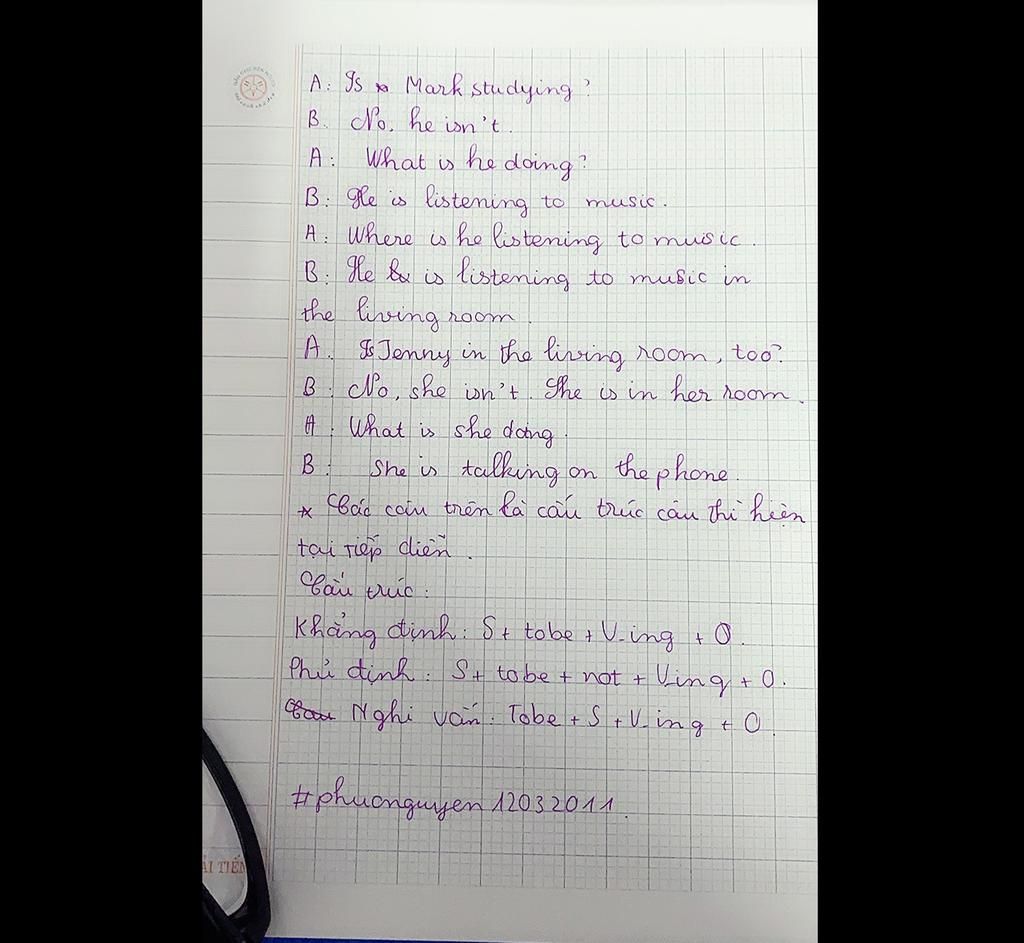 A: Is Mark studying?
B. No, he isn't.
A: What is he doing?
B: He is listening to music.
A: Where is he listening to music.
B: He is listening to music in
the living room.
A. Is Jenny in the living room, too?
B: No, she isn't. She is in her room.
A: What is she doing.
B: She is talking on the phone.
* Các câu trên là cấu trúc câu thì hiện
tại tiếp diễn.
Cấu trúc:
Khẳng định: S + tobe + V-ing + O.
Phủ định: S + tobe + not + V-ing + O.
Nghi vấn: Tobe + S + V-ing + O.
#phuonguyen12032011.
ẢI TIẾN